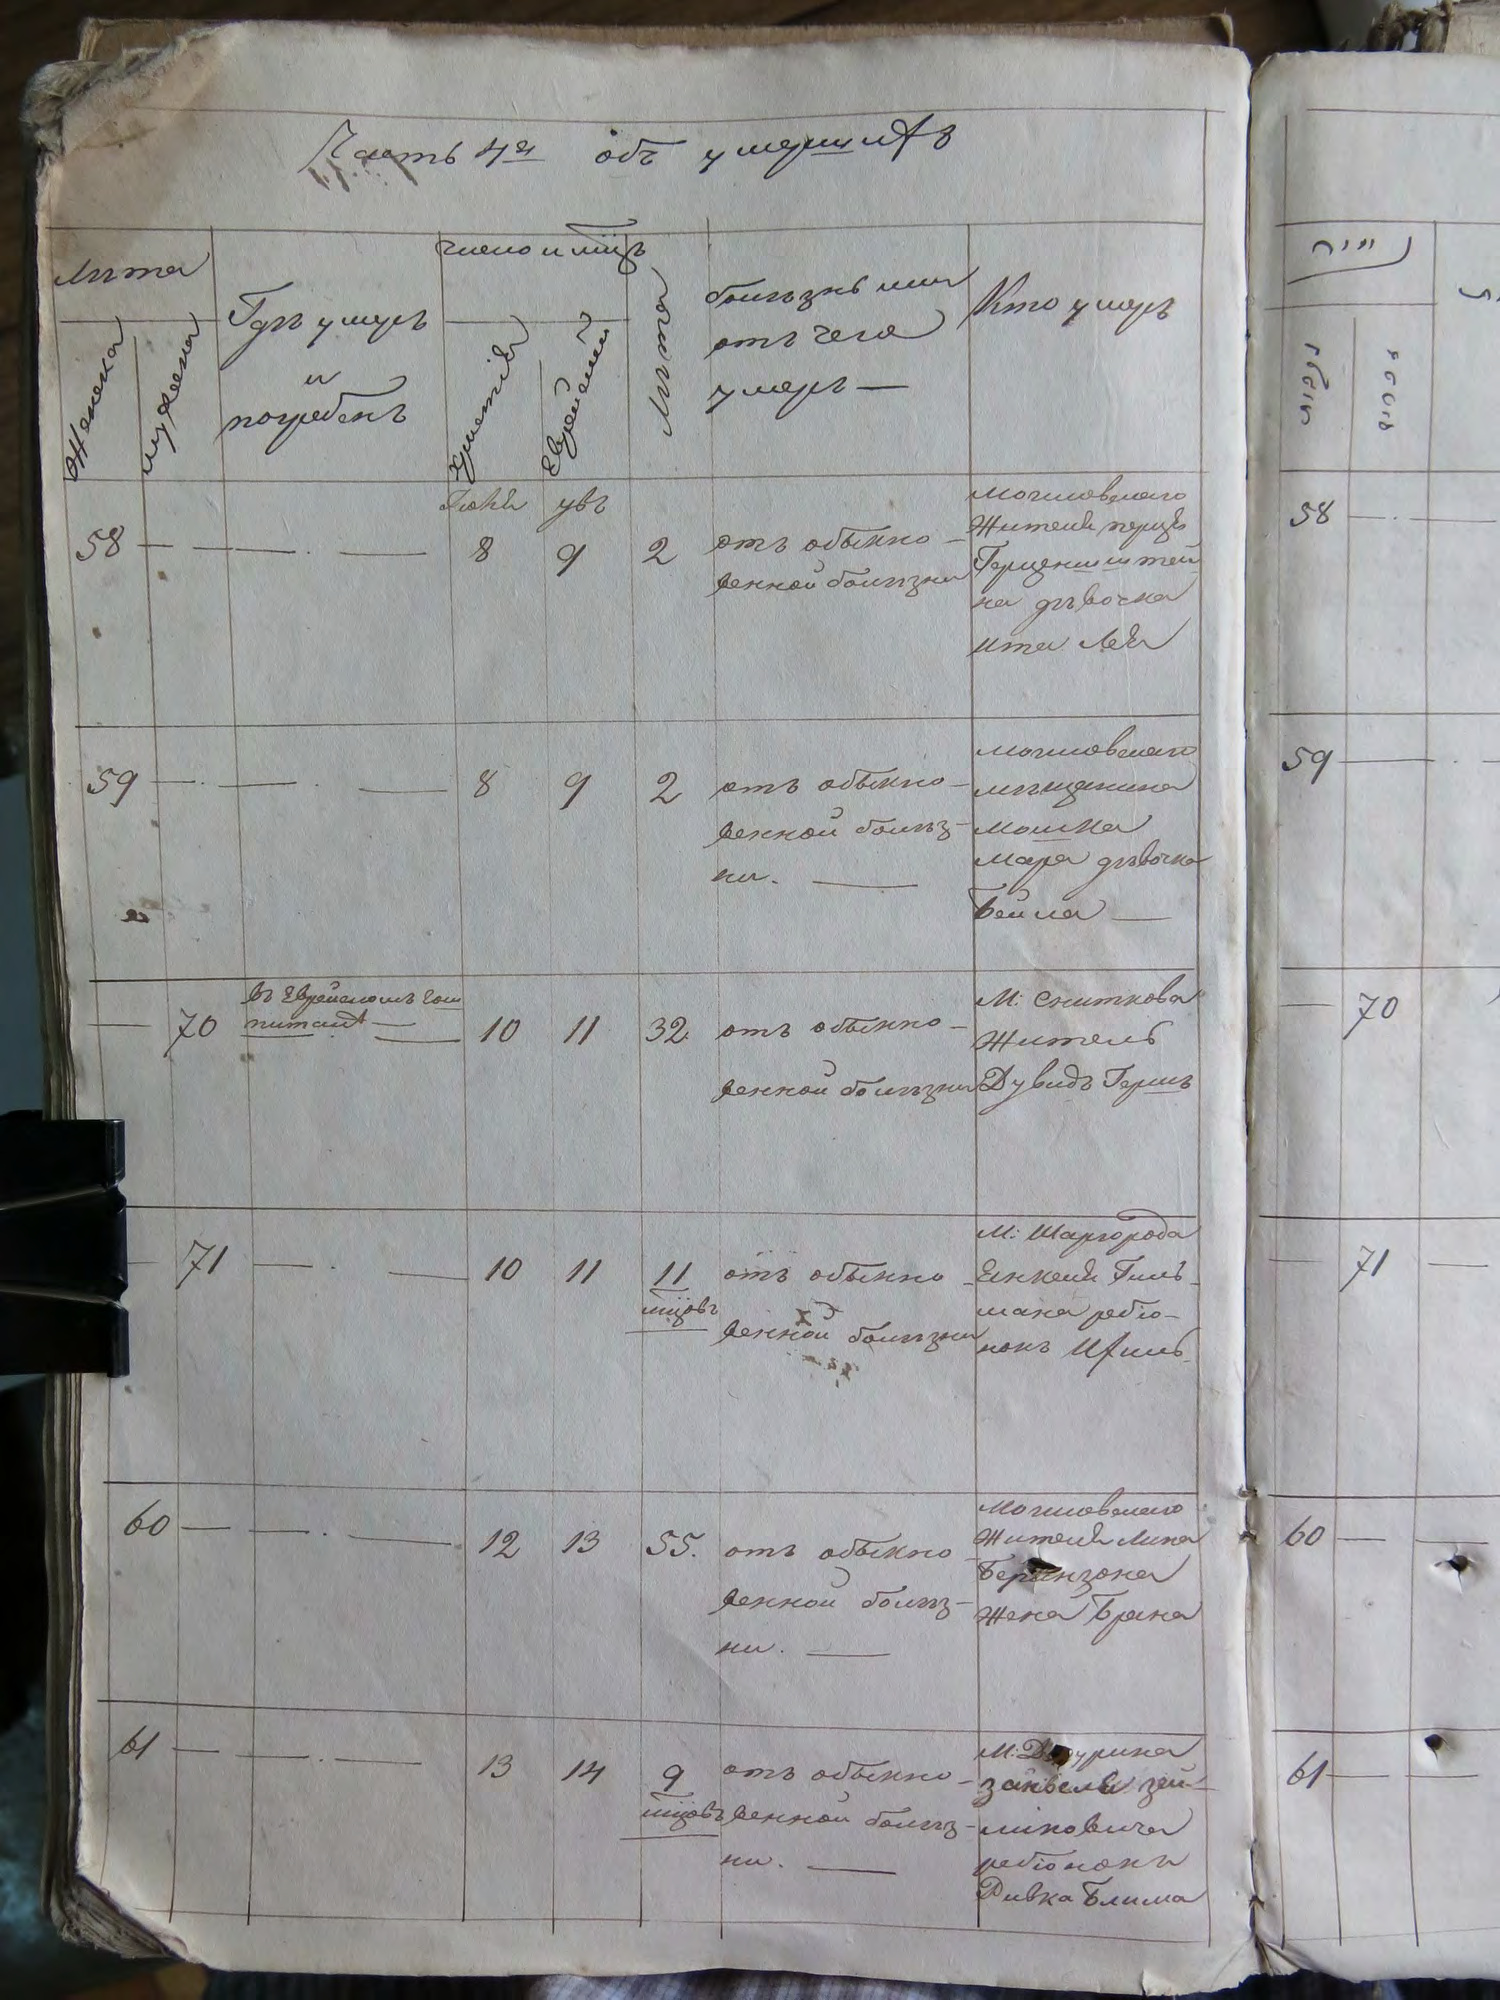 Часть 4я объ умершихъ
Лѣта
Женска
мужеска
Гдѣ умеръ
и
погребенъ
число и мцъ
Христіа
Еврейски
Лѣта
болѣзнь или
отъ чего
умеръ —
Кто умеръ
58 — — . — 8 9 2
отъ обыкно-
венной болѣзни
могилевскаго
жителя
Герценштей
на дѣвочка
Ита Лея
59 — . — . — 8 9 2
отъ обыкно-
венной болѣз-
ни. —
могилевскаго
мѣщанина
Мошка
Мара дѣвочка
Бейла —
— 70
въ Еврейскомъ гош
питалѣ —
10 11 32.
отъ обыкно-
венной болѣзни
М: Сниткова
житель
Дувидъ Гершъ
— 71 — . — 10 11 11
мцовъ
отъ обыкно-
венной болѣзни
М: Шаргорода
Янкеля Гиль-
мана ребіо-
нокъ Ихиль
60 — — . — 12 13 55.
отъ обыкно
венной болѣз-
ни. —
могилевскаго
жителя
Беринзона
жена Брана
61 — — . — 13 14 9
мцовъ
отъ обыкно-
венной болѣз-
ни. —
Занвеля Зей-
ликовича
ребіонокъ
Ривка Блима
58 — . —
59 — . —
— 70
— 71 —
60 — —
61 — —